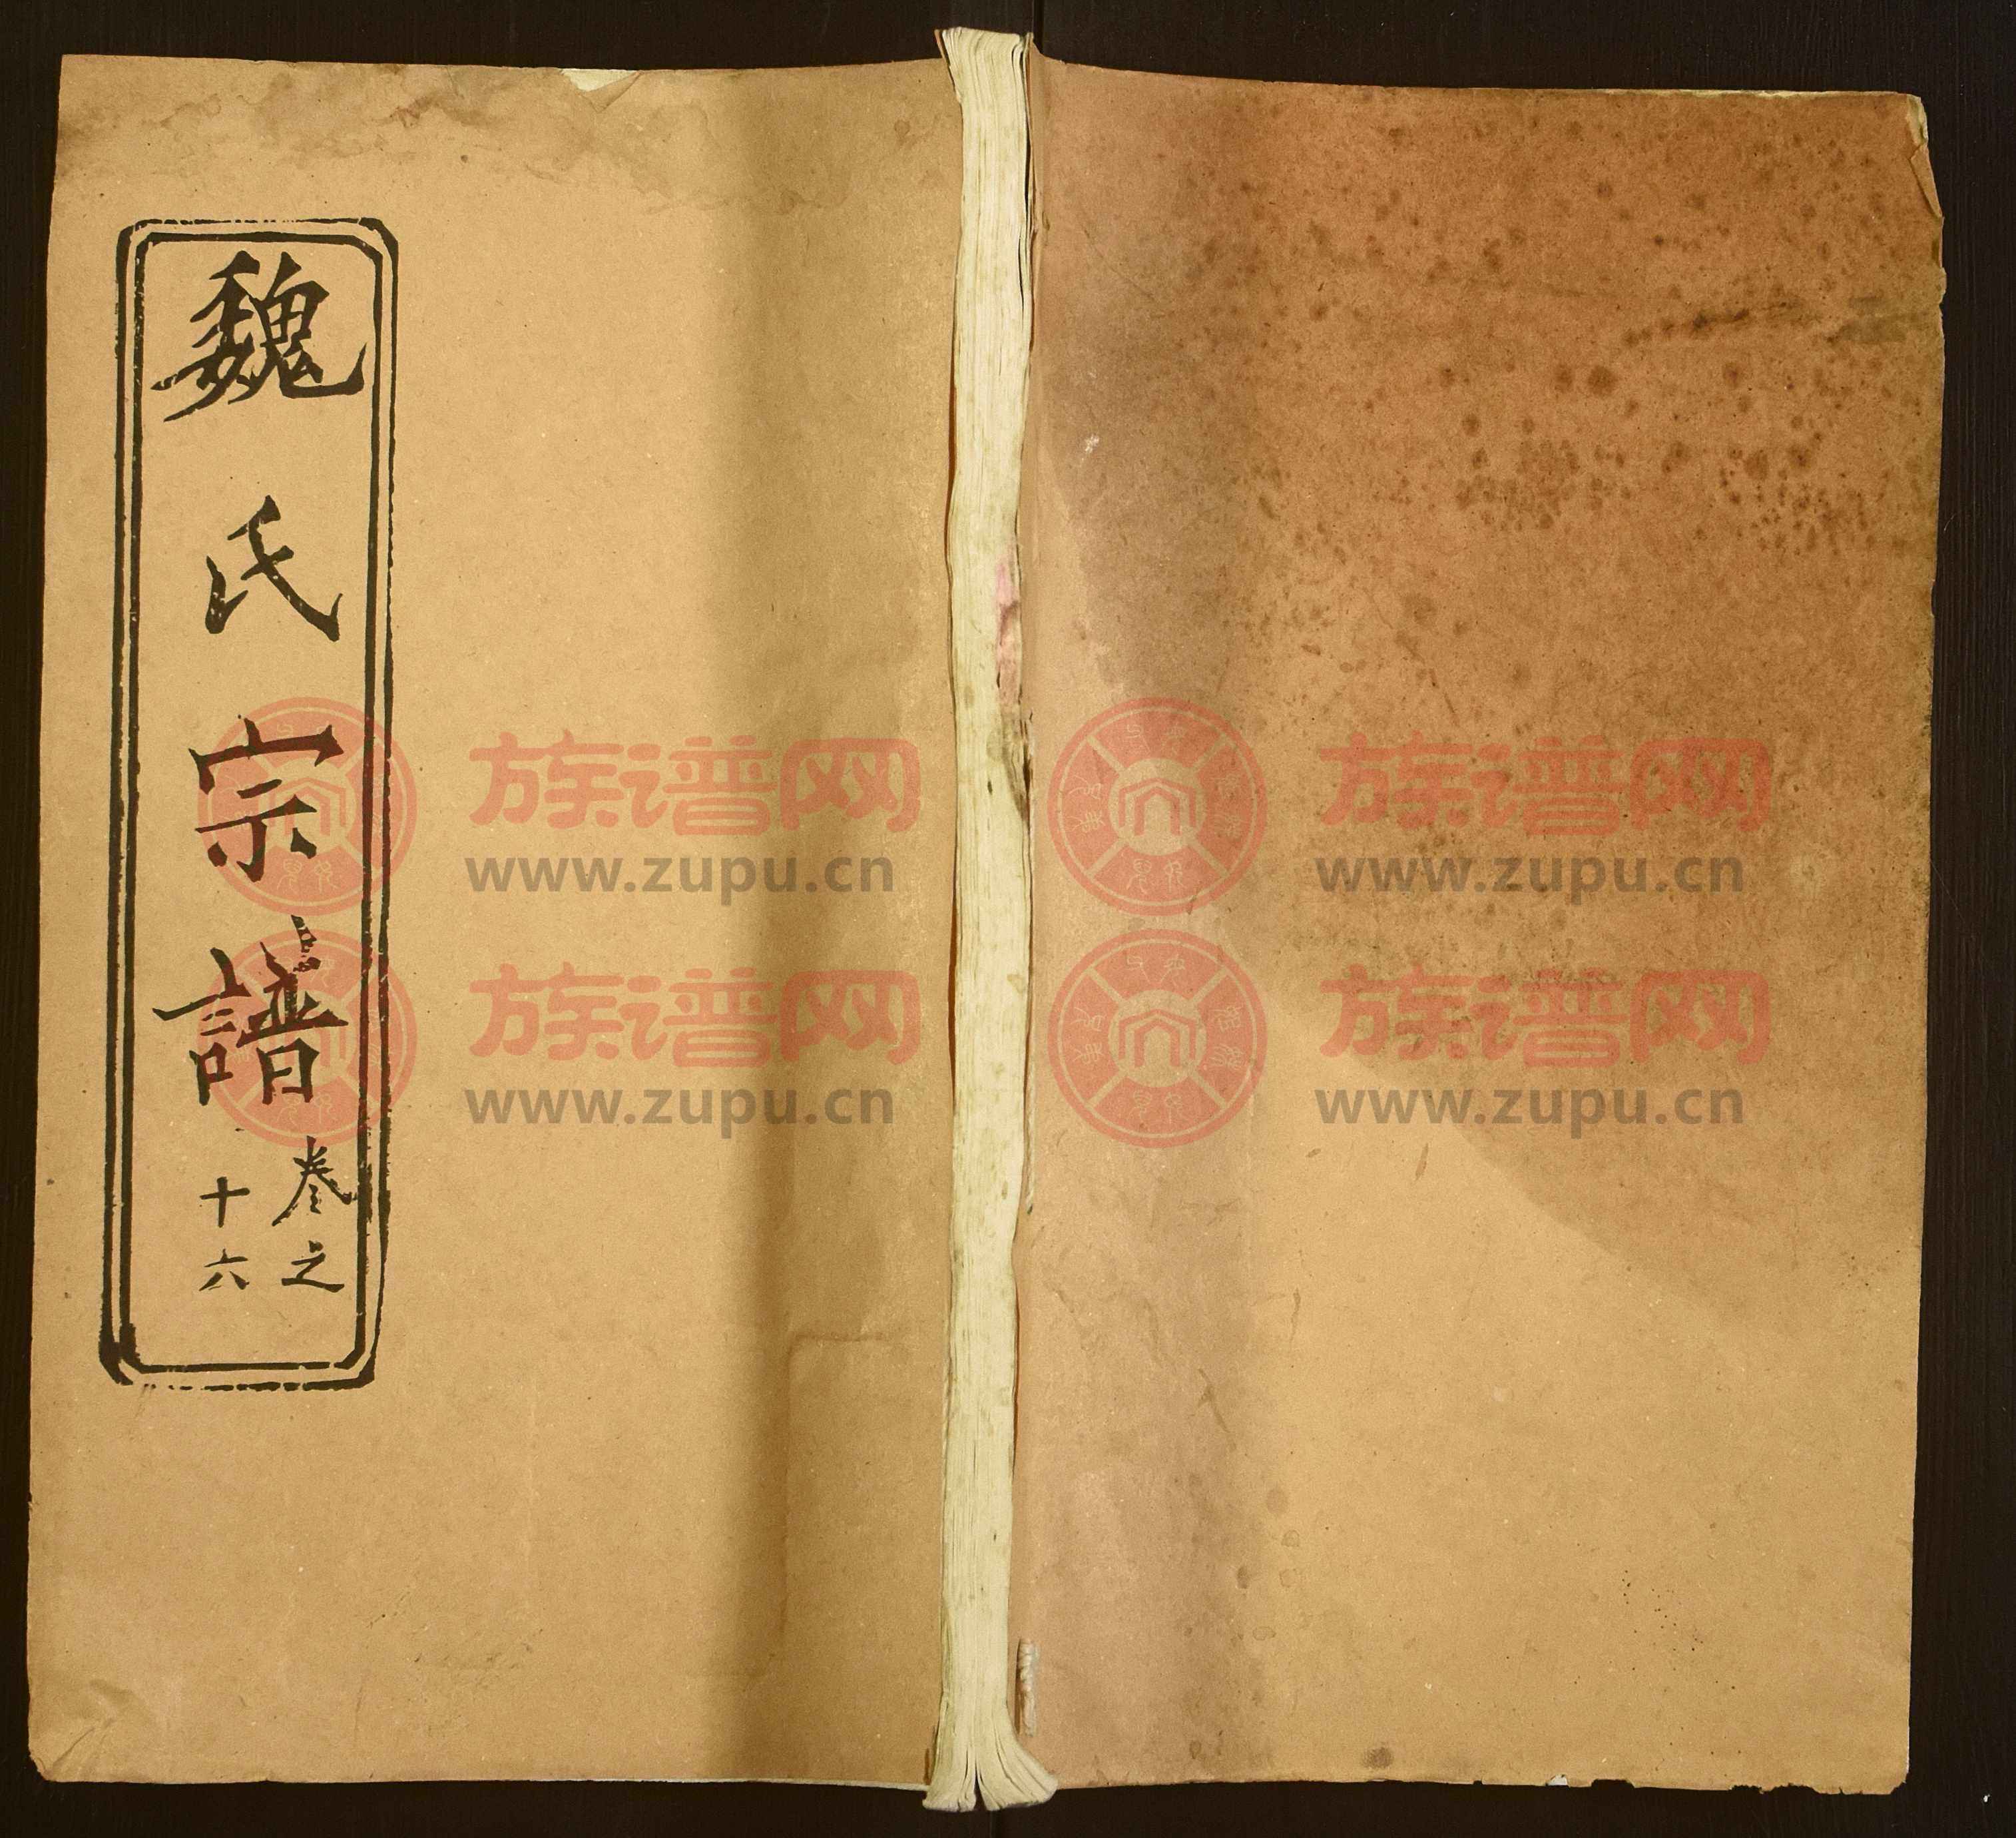 魏氏宗譜
卷之
十六
族谱网
www.zupu.cn
族谱网
www.zupu.cn
族谱网
www.zupu.cn
族谱网
www.zupu.cn